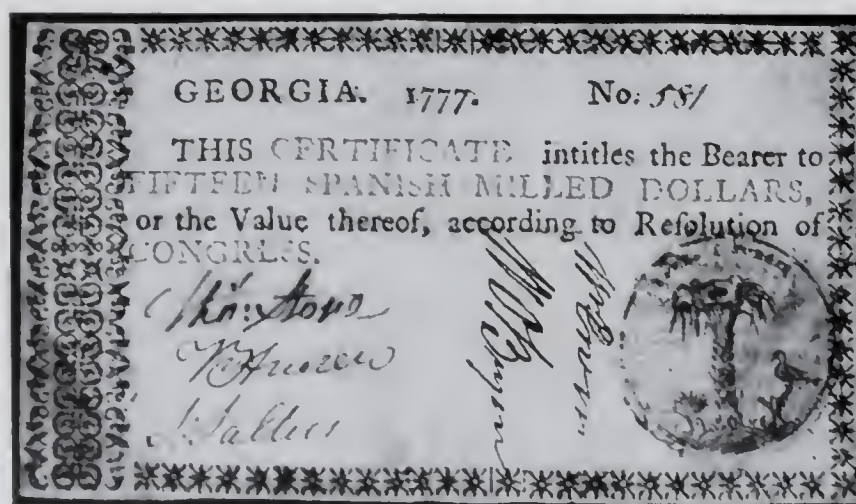 GEORGIA. 1777. No: 581
THIS CERTIFICATE intitles the Bearer to
FIFTEEN SPANISH MILLED DOLLARS,
or the Value thereof, according to Reſolution of
CONGRESS.
Tho: Stone